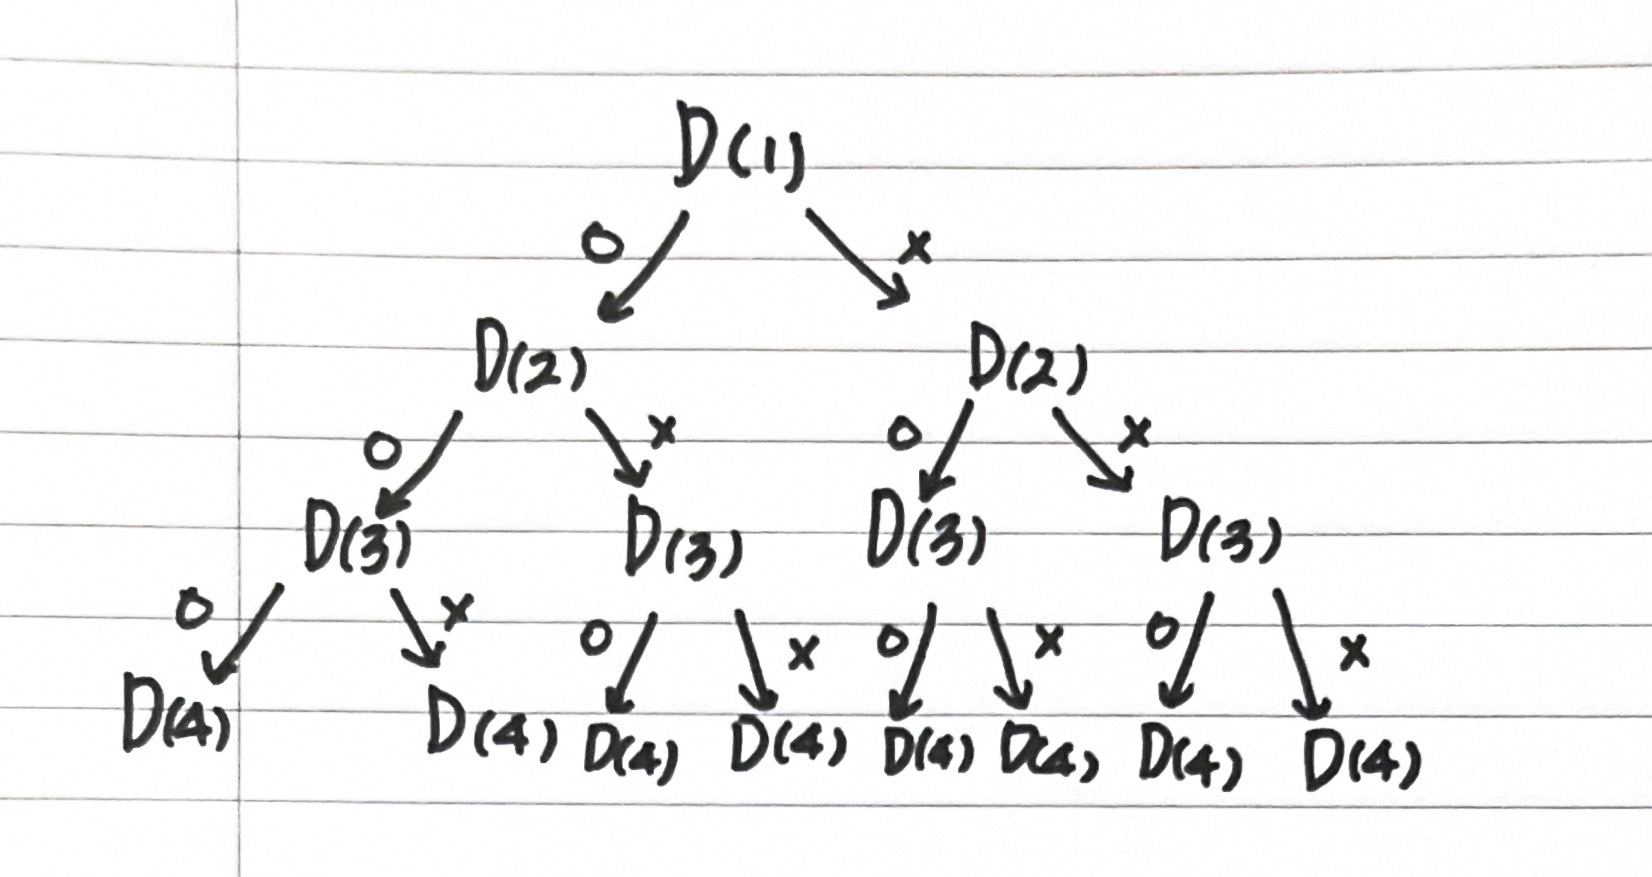 D(1)
O X
D(2) D(2)
O X O X
D(3) D(3) D(3) D(3)
O X O X O X O X
D(4) D(4) D(4) D(4) D(4) D(4) D(4) D(4)